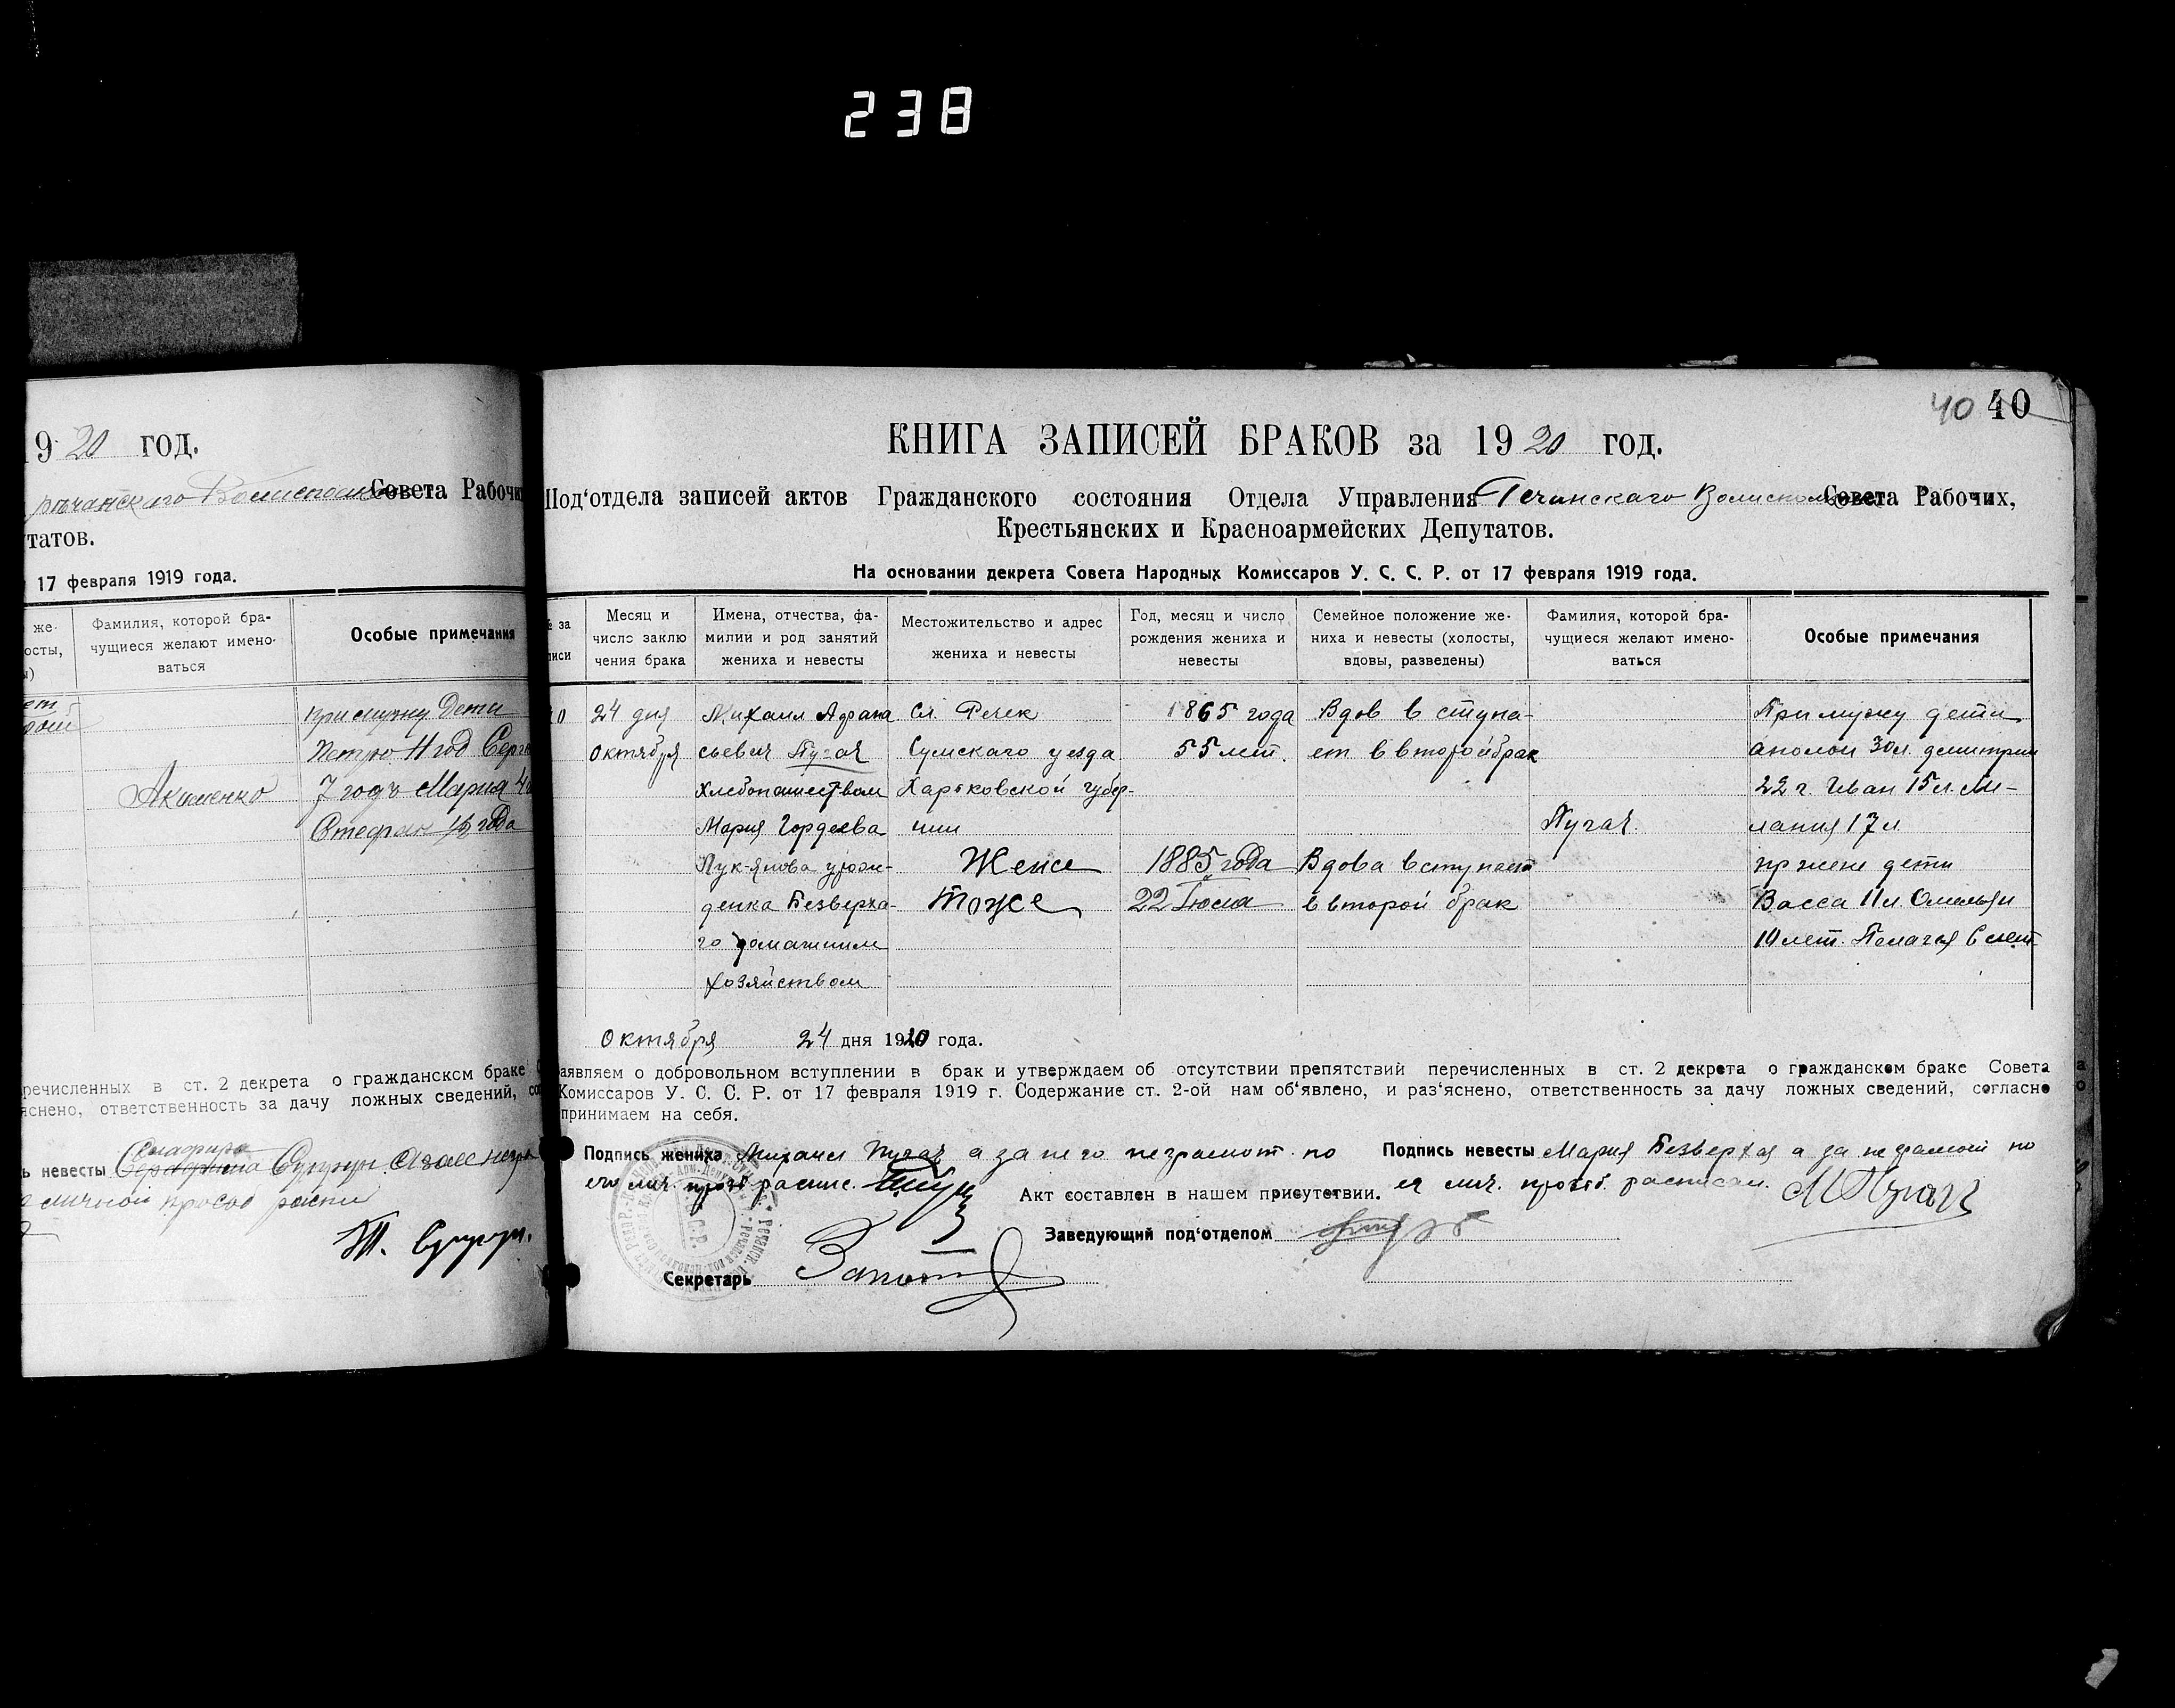 238
19 20 год.
Совета Рабочи
татов.
17 февраля 1919 года.
же-
осты,
Фамилия, которой бра-
чущиеся желают имено-
ваться
Особые примечания
при мужу Дети
Петро 11 год Серг
Акименко
7 годъ Мария
Стефан 1½ года
речисленных в ст. 2 декрета о гражданском браке
яснено, ответственность за дачу ложных сведений,
ь невесты
личной
40 40
КНИГА ЗАПИСЕЙ БРАКОВ за 19 20 год.
Под‘отдела записей актов Гражданского состояния Отдела Управления Речанскаго Волисполкома Совета Рабочих,
Крестьянских и Красноармейских Депутатов.
На основании декрета Совета Народных Комиссаров У. С. С. Р. от 17 февраля 1919 года.
№ за
писи
Месяц и
число заклю
чения брака
Имена, отчества, фа-
милии и род занятий
жениха и невесты
Местожительство и адрес
жениха и невесты
Год, месяц и число
рождения жениха и
невесты
Семейное положение же-
ниха и невесты (холосты,
вдовы, разведены)
Фамилия, которой бра-
чущиеся желают имено-
ваться
Особые примечания
0
24 дня
Октября
Михаил Афана
сьевич Пугач
Хлебопашеством
Мария Гордеева
Лук-янова урож-
денка Безверха-
го домашним
хозяйством
Сл. Речек
Сумскаго уезда
Харьковской губер-
нии
Жене
тоже
1865 года
55 лет.
1885 года
22 Июля
Вдов в ступа-
ет в второй брак
Вдова вступает
в второй брак
Пугач
При мужу дети
аполон 30 л. димитрий
22 г. Иван 15 л. Ме-
лания 17 л
пр жене дети
Васса 11 л Омельян
10 лет. Пелагея 6 лет
Октября 24 дня 1920 года.
Заявляем о добровольном вступлении в брак и утверждаем об отсутствии препятствий перечисленных в ст. 2 декрета о гражданском браке Совета
Комиссаров У. С. С. Р. от 17 февраля 1919 г. Содержание ст. 2-ой нам об‘явлено, и раз‘яснено, ответственность за дачу ложных сведений, согласно
принимаем на себя.
Подпись жениха Михаил Пугач а за него неграмот. по
его лич. прозб распис.
Подпись невесты Мария Безверхая а за неграмот по
ея лич. прозб. расписал. М Пугач
Акт составлен в нашем присутствии.
Заведующий под‘отделом
Секретарь